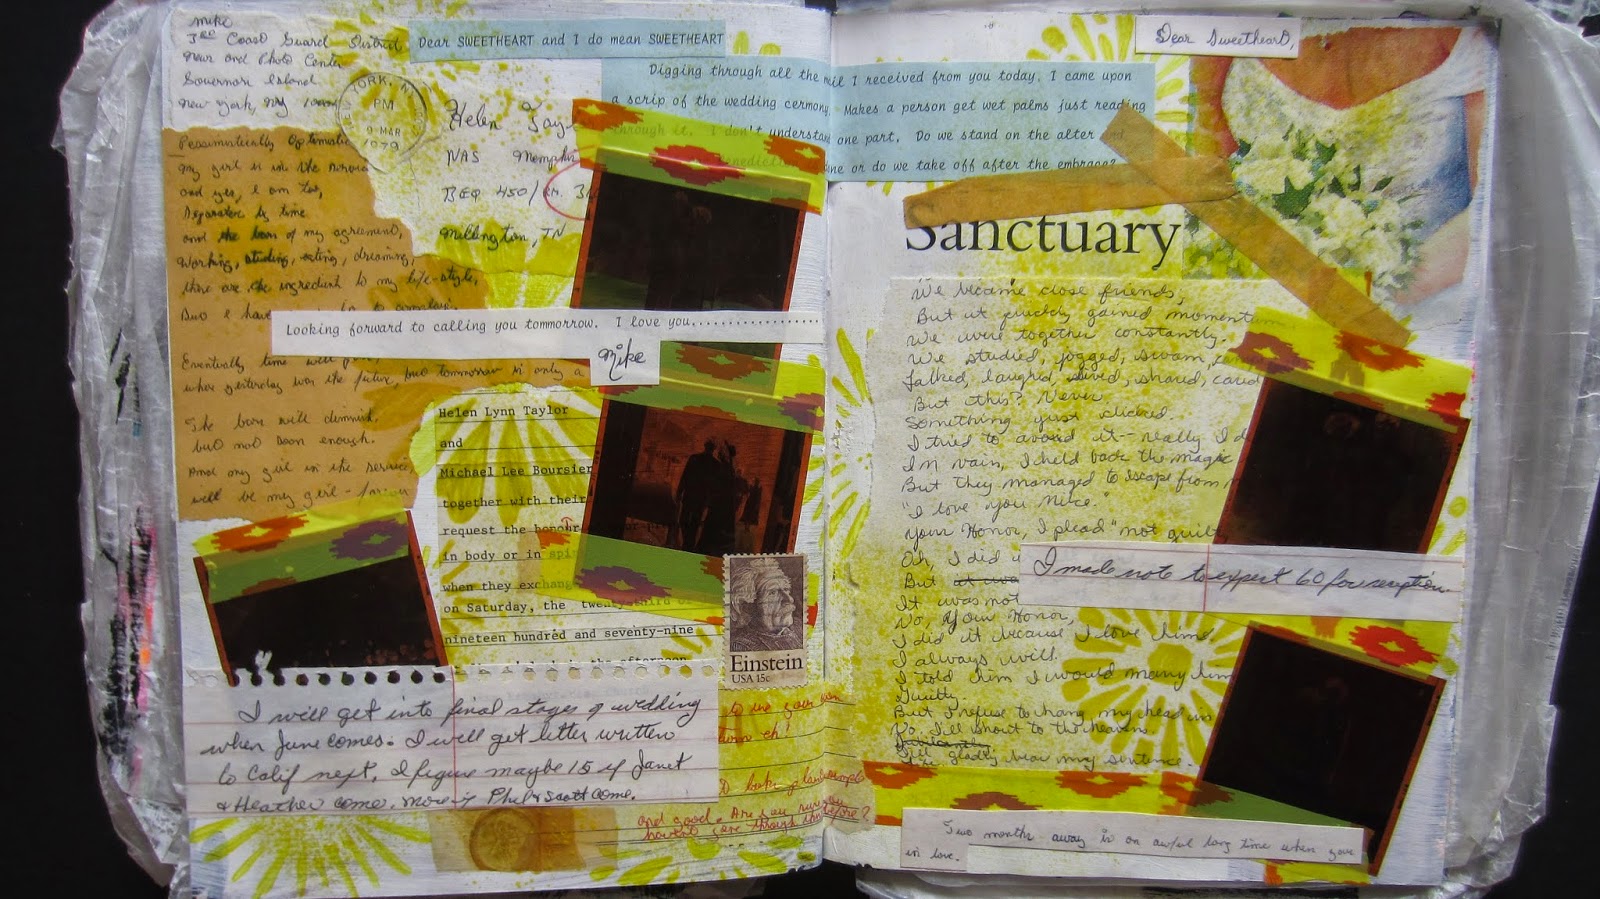 mike
3RD Coast Guard District
News and Photo Center
Governor Island
New York, NY
YORK, N
PM
9 MAR
1979
Helen Tayl
NAS Memphis
BEQ 450/
Millington, TN
Dear SWEETHEART and I do mean SWEETHEART
Digging through all the mail I received from you today. I came upon
a scrip of the wedding cermony. Makes a person get wet palms just reading
through it. I don't understand one part. Do we stand on the alter and
Benediction ine or do we take off after the embrace?
Dear Sweetheart,
Pessimistically Optomistic
my girl is in the service
and yes, I am too,
Seperated by time
and the of my agreement,
working, eating, dreaming,
these are the ingredient to my life-style,
But I have
Looking forward to calling you tommorrow. I love you..................
Mike
Eventually time will
when yesterday was the future, but tommorrow is only a
The will diminish,
but not soon enough.
And my girl in the service,
will be my girl - forever
Helen Lynn Taylor
and
Michael Lee Boursier
together with their
request the honour
in body or in spi
when they exchang
on Saturday, the twenty-third
nineteen hundred and seventy-nine
the afternoon
Einstein
USA 15c
I will get into final stages of wedding
when June comes. I will get letter written
to Calif next, I figure maybe 15 if Janet
& Heather come, more if Phil & Scott come.
to use your own
eh!
and good. Are you
gone through this before?
Sanctuary
We became close friends,
But it quickly gained momentum
We were together constantly.
We studied, jogged, swam,
talked, laughed, shared, cared
But this? Never.
Something just clicked.
I tried to avoid it-- really I d
In vain, I held back the magic
But they managed to escape from m
"I love you Mike."
Your Honor, I plead "not guilty
Oh, I did
But it was
It was not
No, Your Honor,
I did it because I love him.
I always will.
I told him I would marry him
Guilty.
But I refuse to hang my head in
No, I'll shout to the heavens.
I'll gladly bear my sentence.
I made note to expect 60 for reception
Two months away is an awful long time when your
in love.